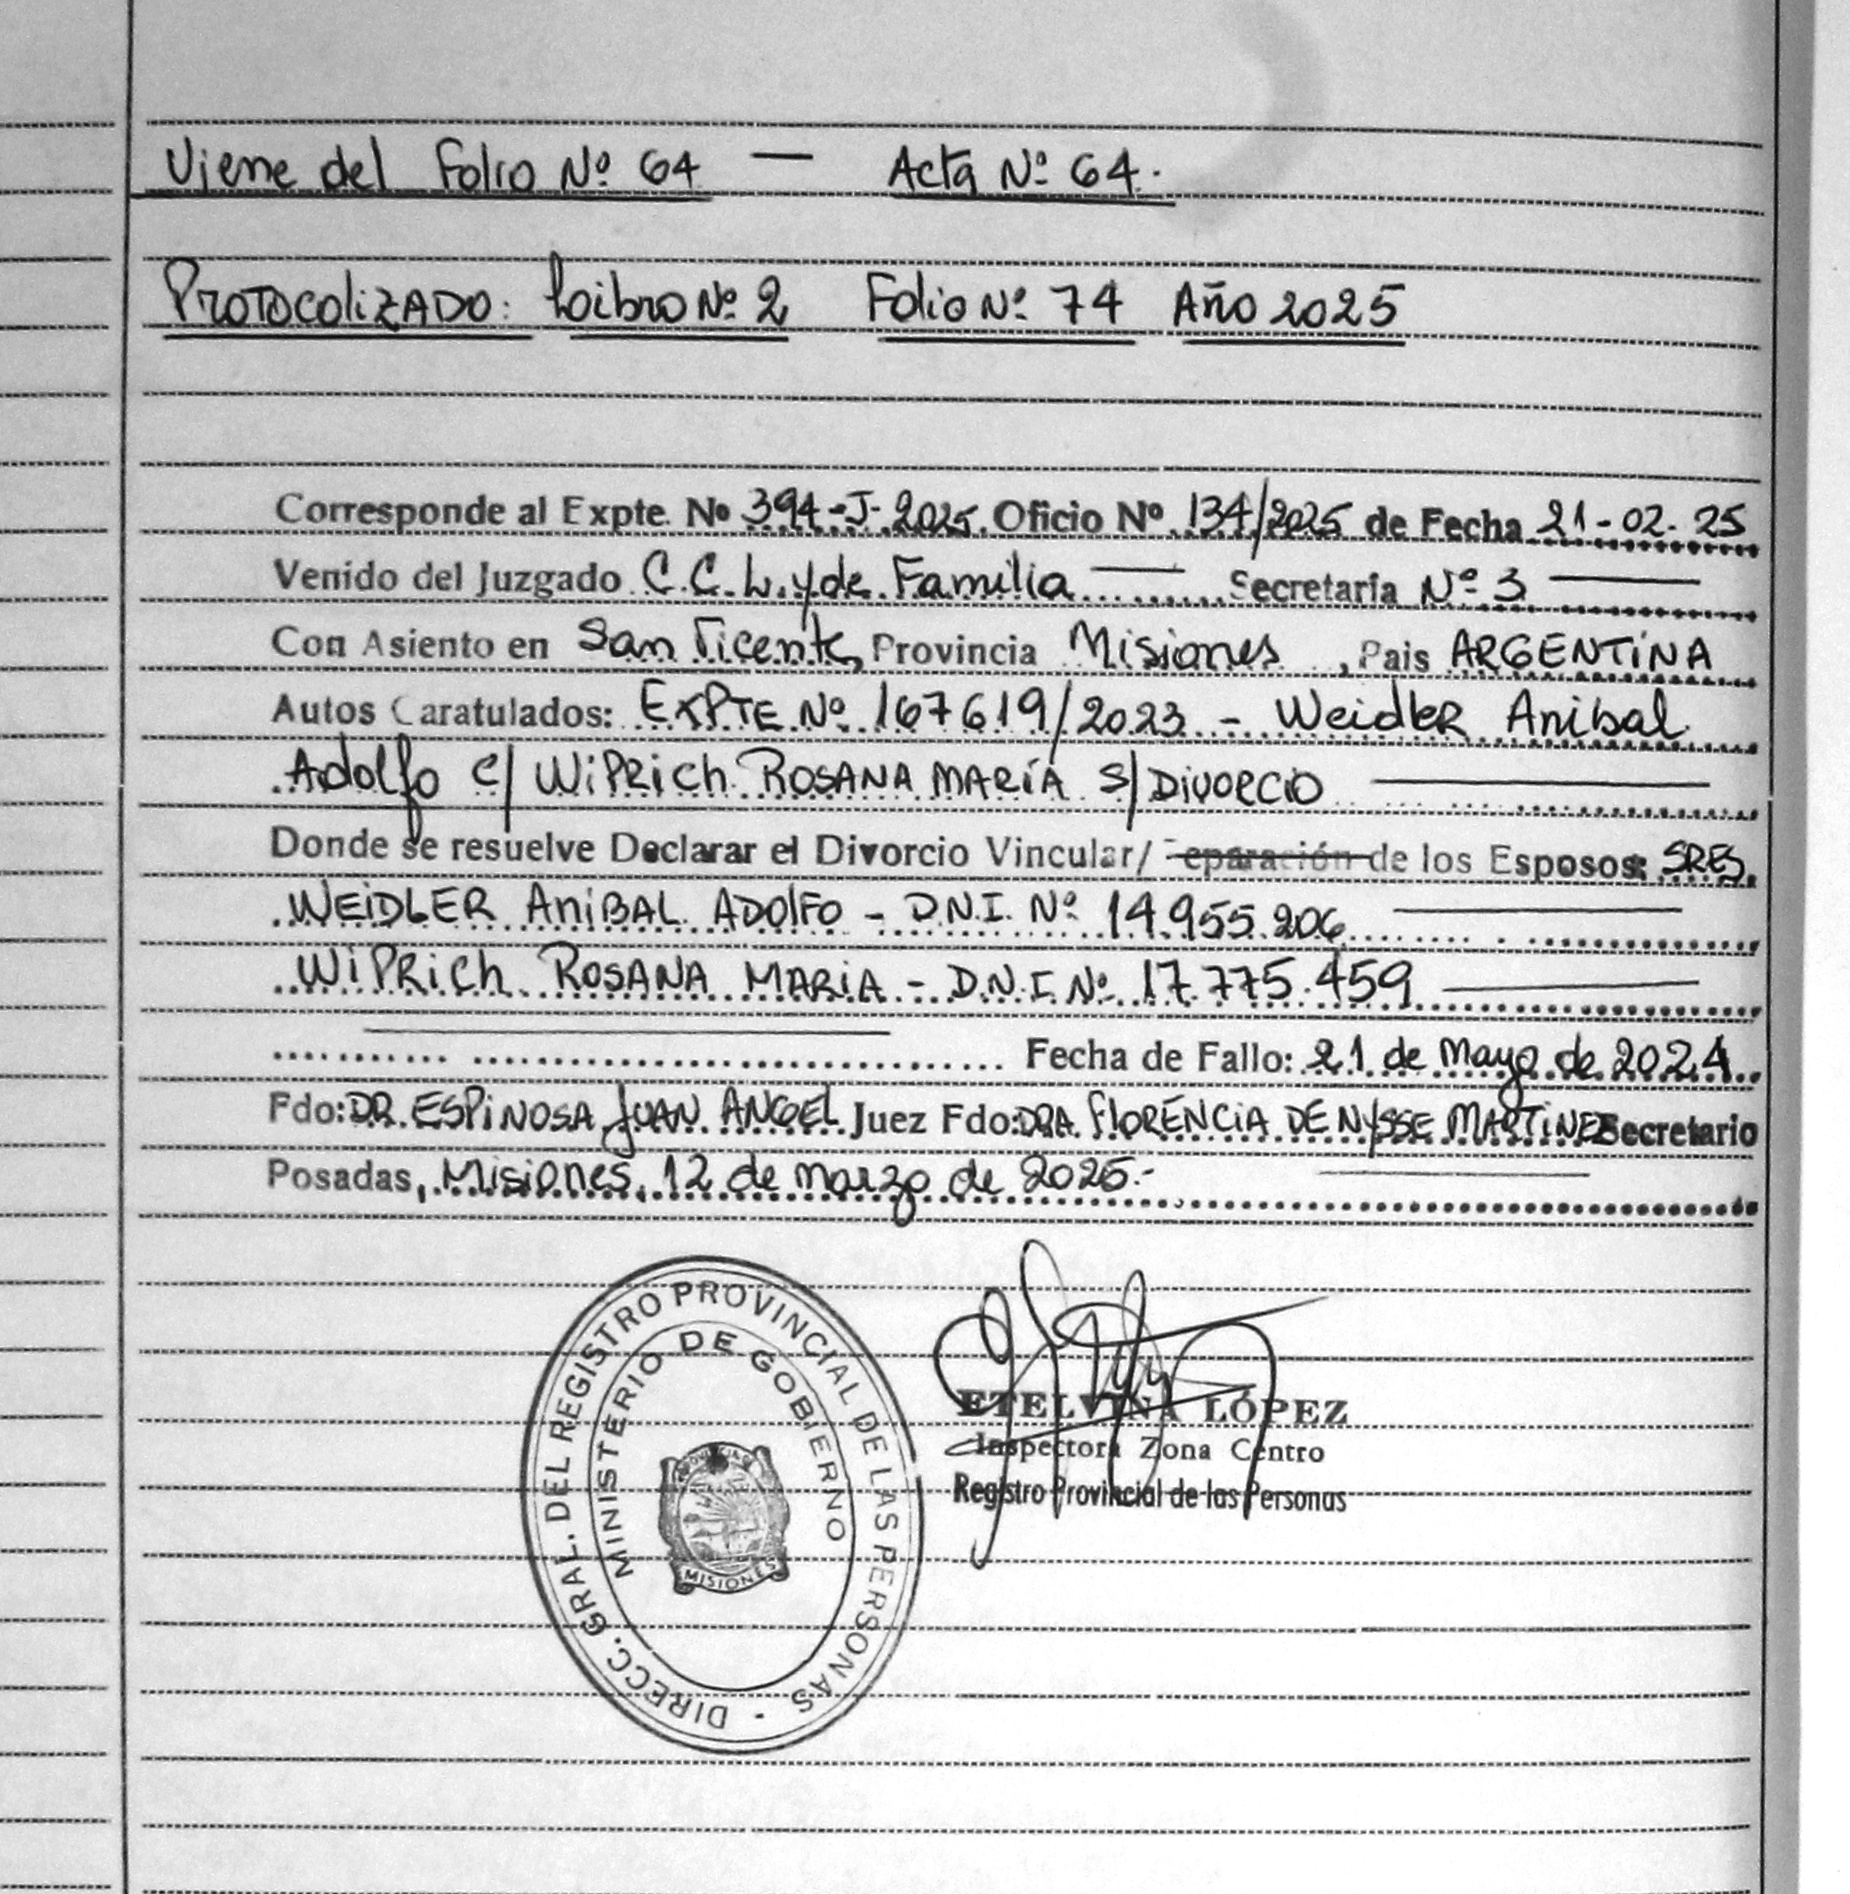 Viene del Folio Nº 64 — Acta Nº 64.
PROTOCOLIZADO: Libro Nº 2 Folio Nº 74 Año 2025
Corresponde al Expte. Nº 394-J-2025. Oficio Nº 134/2025 de Fecha 21-02-25
Venido del Juzgado C.C.L. y de Familia — Secretaria Nº 3 —
Con Asiento en San Vicente, Provincia Misiones, Pais ARGENTINA
Autos Caratulados: EXPTE Nº 167619/2023 - Weidler Anibal
Adolfo c/ WIPRICH ROSANA MARÍA S/ DIVORCIO —
Donde se resuelve Declarar el Divorcio Vincular/ eparación de los Esposos: SRES.
WEIDLER ANIBAL ADOLFO - D.N.I. Nº 14.955.206 —
WIPRICH ROSANA MARIA - D.N.I. Nº 17.775.459 —
Fecha de Fallo: 21 de Mayo de 2024
Fdo: DR. ESPINOSA JUAN ANGEL Juez Fdo: DRA. FLORENCIA DENYSSE MARTINEZ Secretario
Posadas, Misiones, 12 de marzo de 2025.-
DIRECC. GRAL. DEL REGISTRO PROVINCIAL DE LAS PERSONAS -
MINISTERIO DE GOBIERNO
PROVINCIA
MISIONES
ETELVINA LÓPEZ
Inspectora Zona Centro
Registro Provincial de las Personas